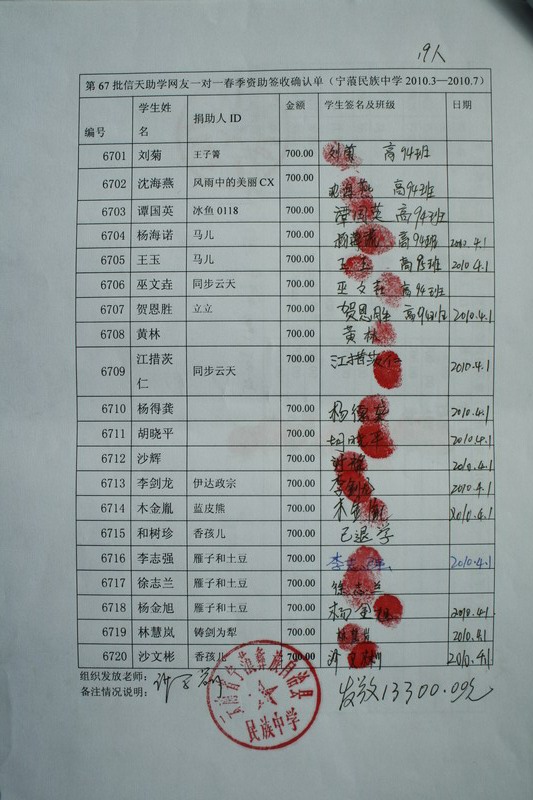 19人
第67批信天助学网友一对一春季资助签收确认单（宁蒗民族中学2010.3—2010.7）
编号 学生姓名 捐助人ID 金额 学生签名及班级 日期
6701 刘菊 王子箐 700.00 刘菊 高94班
6702 沈海燕 风雨中的美丽CX 700.00 沈海燕 高94班
6703 谭国英 冰鱼0118 700.00 谭国英 高94班
6704 杨海诺 马儿 700.00 杨海诺 高94班 2010.4.1
6705 王玉 马儿 700.00 王玉 高95班 2010.4.1
6706 巫文垚 同步云天 700.00 巫文垚 高94班
6707 贺恩胜 立立 700.00 贺恩胜 高94班 2010.4.1
6708 黄林 700.00 黄林
6709 江措茨仁 同步云天 700.00 江措茨仁 2010.4.1
6710 杨得龚 700.00 杨德 2010.4.1
6711 胡晓平 700.00 胡晓平 2010.4.1
6712 沙辉 700.00 沙辉 2010.4.1
6713 李剑龙 伊达政宗 700.00 李剑龙 2010.4.1
6714 木金胤 蓝皮熊 700.00 木金胤 2010.4.1
6715 和树珍 香孩儿 700.00 已退学
6716 李志强 雁子和土豆 700.00 李志强 2010.4.1
6717 徐志兰 雁子和土豆 700.00 徐志兰
6718 杨金旭 雁子和土豆 700.00 杨金旭 2010.4.1
6719 林慧岚 铸剑为犁 700.00 林慧岚 2010.4.1
6720 沙文彬 香孩儿 700.00 沙文彬 2010.4.1
组织发放老师：
备注情况说明： 发放13300.00元
云南省宁蒗彝族自治县
民族中学